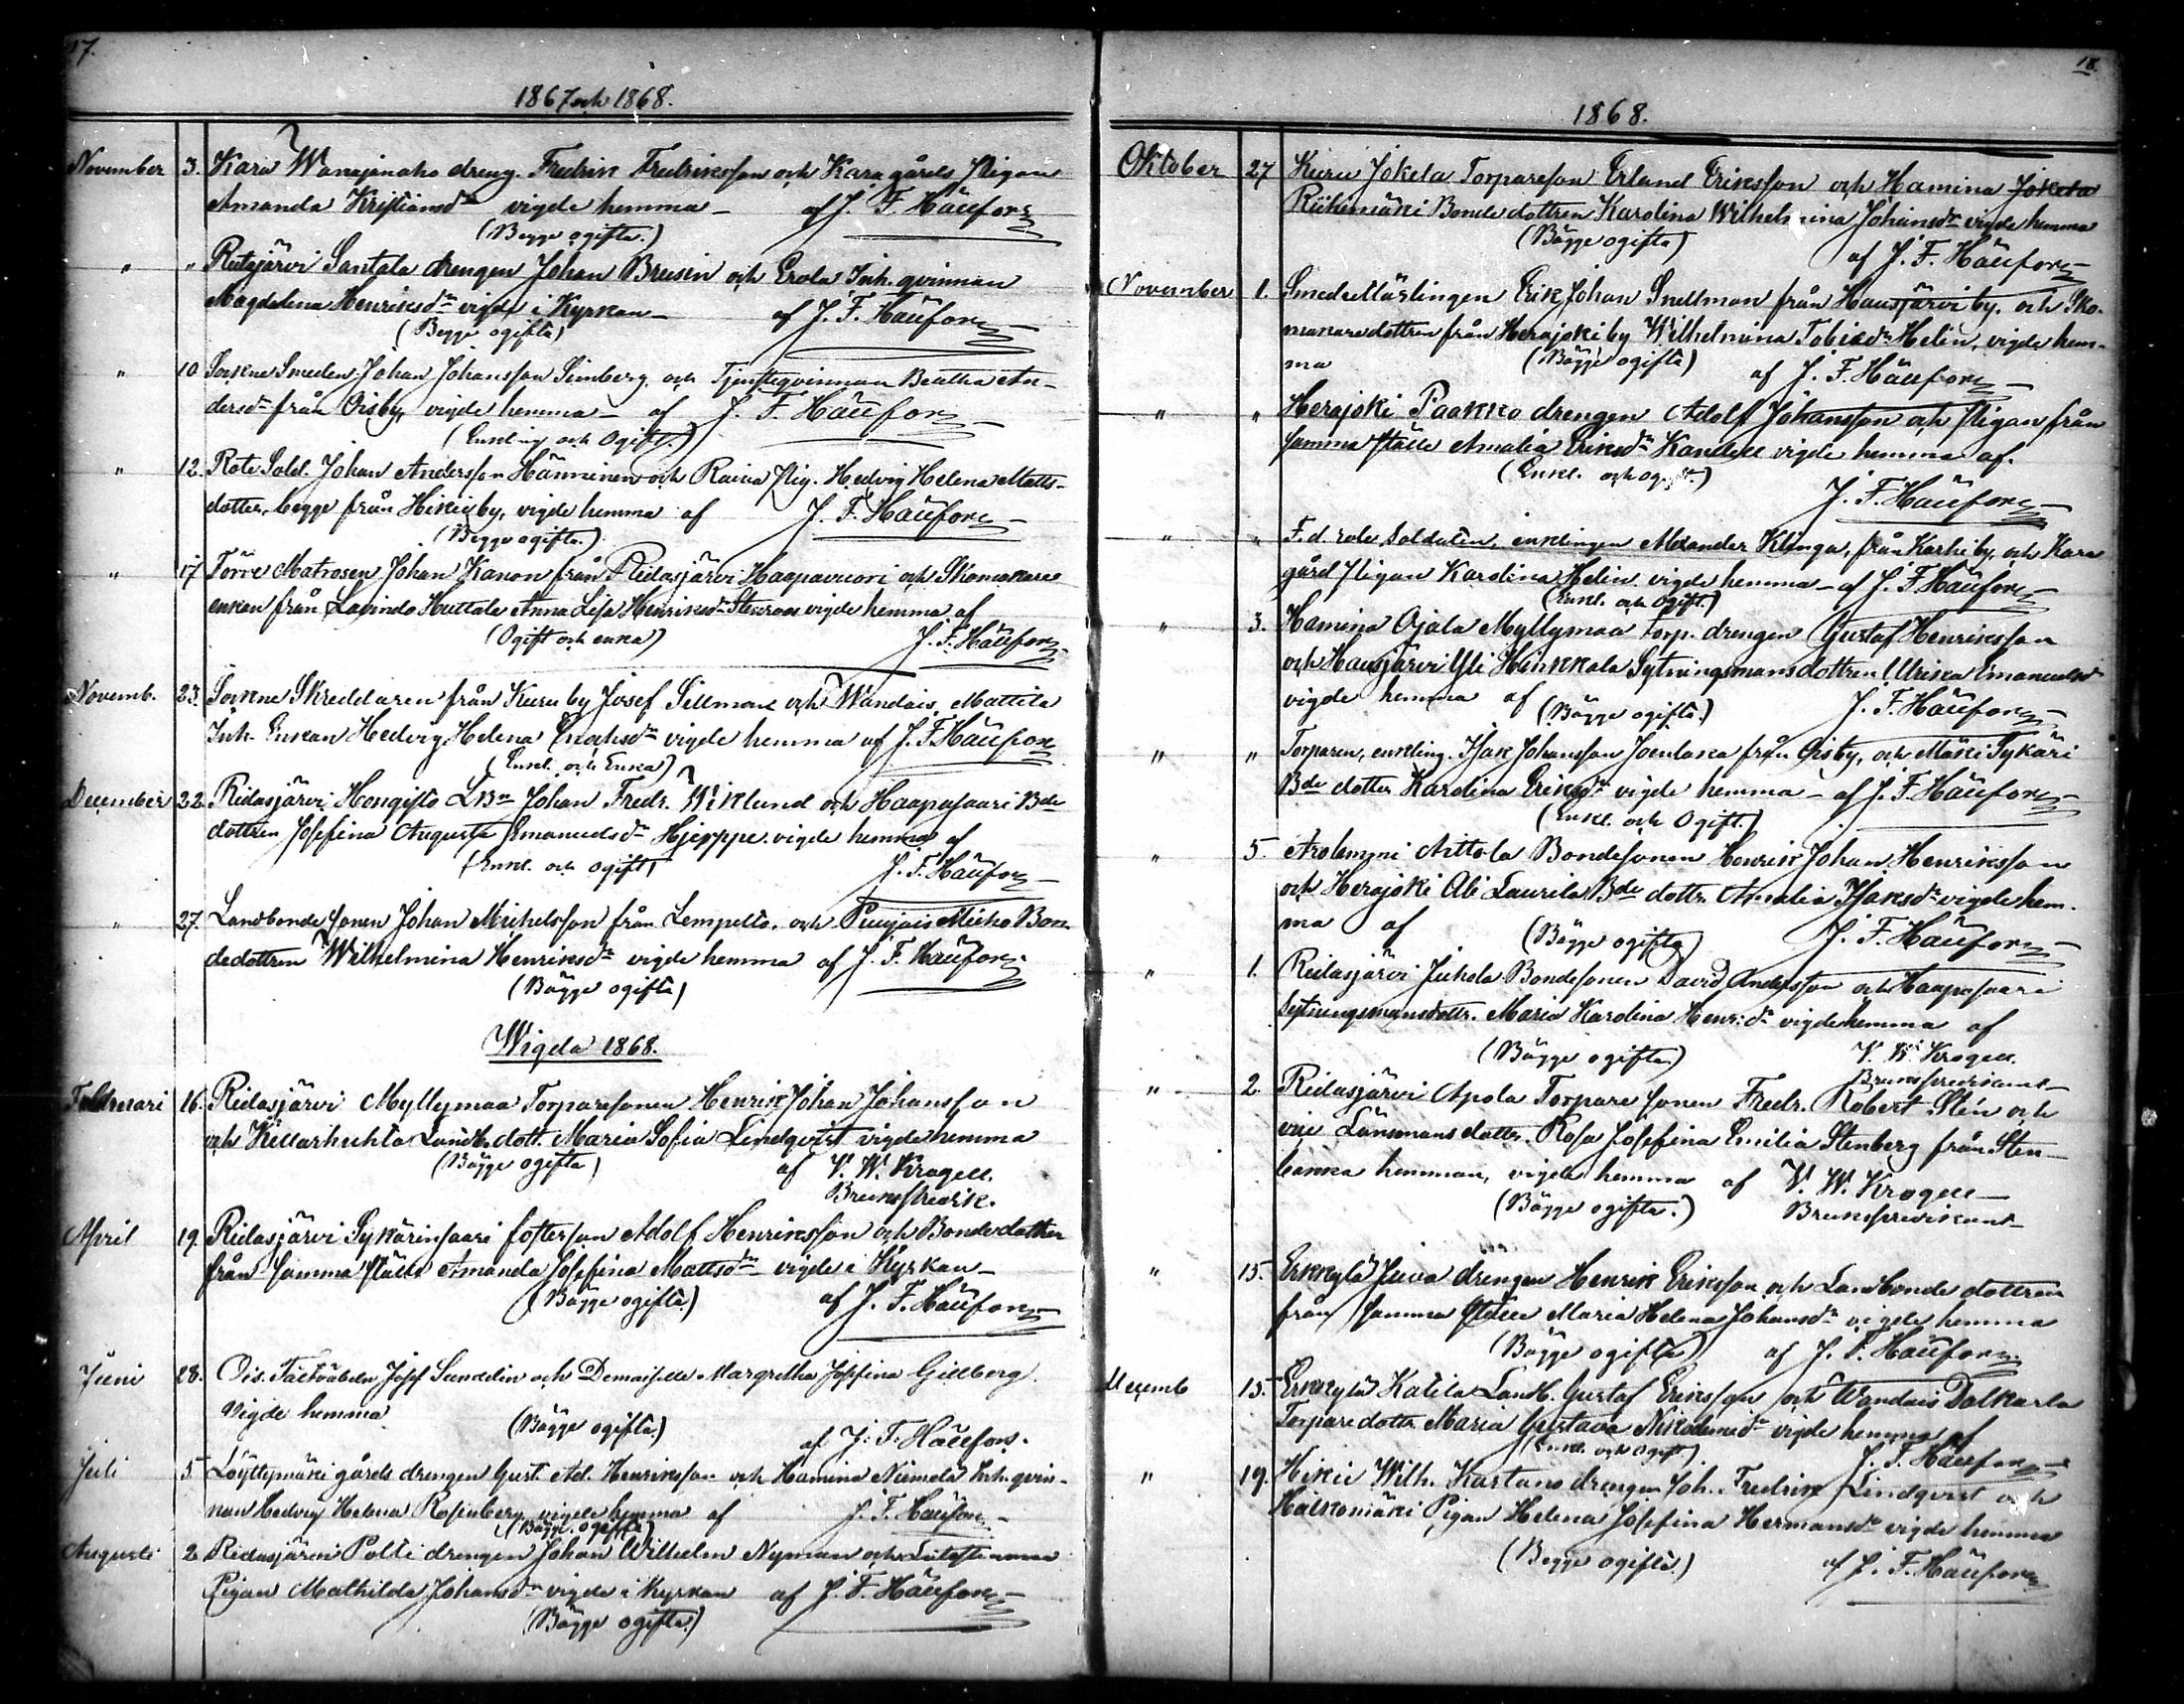 17.
1867 och 1868.
November 3. Kara Wanajanaho dreng. Fredrik Fredriksson och Kara gårds Pigan
Amanda Kristiansdr vigde hemma – af J. F. Häufors
(Begge ogifta.)
" " Ridasjärvi Santala drengen Johan Brusin och Erola Inh. qvinnan
Magdalena Henriksdr vigde i Kyrkan – af J. F. Häufors
(Begge ogifta)
" 10 Sockne Smeden Johan Johansson Simberg och Tjensteqvinnan Beatha An-
dersdr från Oisby, vigde hemma – af J. F. Häufors
(Enkling och Ogift.)
" 12. Rote Sold. Johan Andersson Hänninen och Pig. Hedvig Helena Matts-
dotter, begge från Hikiäby, vigde hemma af J. F. Häufors
(Begge ogifta.)
" 17 Matrosen Johan Kanon från Ridasjärvi Haapavuori och Skomakare
enkan från Huttala Anna Lisa Henriksdr Stenroos vigde hemma af
(Ogift och enka) J. F. Häufors
Novemb. 23. Sockne Skreddaren från Kuru by Josef Sillman och Wandais Mattila
Inh. Enkan Hedvig Helena Enochsdr vigde hemma af J. F. Häufors
(Enkl. och Enka)
December 22. Ridasjärvi Hongisto LBn Johan Fredr. Wiklund och Haapasaari Bde
dottren Josefina Augusta Emanuelsdr Hjerppe vigde hemma af
(Enkl. och ogift) J. F. Häufors
" 27. Landbonde sonen Johan Mickelsson från Lempelto och Puujais Mieho Bon
dedottren Wilhelmina Henriksdr vigde hemma af J. F. Häufors
(Bägge ogifta)
Wigda 1868.
Februari 16. Ridasjärvi Myllymaa Torparesonen Henrik Johan Johansson
och Landb. dott. Maria Sofia Lindqvist vigde hemma
(Bägge ogifta) af V. W. Krogell.
Brukspredik.
April 19. Ridasjärvi Sykärinsaari fosterson Adolf Henriksson och Bondedotter
från samma ställe Amanda Josefina Mattsdr vigde i Kyrkan –
(Bägge ogifta) af J. F. Häufors
Juni 28. Josef Sundelin och Demoiselle Margretha Josefina Gillberg
vigde hemma (Bägge ogifta)
af J. F. Häufors.
Juli 5 Löyttymäki gårds drengen Gust. Ad. Henriksson och Hamina Niemelä Inh. qvin-
nan Hedvig Helena Rosenberg vigde hemma af J. F. Häufors
(Bägge ogifta)
Augusti 2 Ridasjärvi Potti drengen Johan Wilhelm Nyman och
Pigan Mathilda Johansdr vigde i Kyrkan af J. F. Häufors
(Bägge ogifta)
18.
1868.
Oktober 27 Kuru Jokela Torpareson Erland Eriksson och Hamina Jokela
Riihimäki Bonde dottren Karolina Wilhelmina Johansdr vigde hemma
(Bägge ogifta) af J. F. Häufors
November 1. Smedsellärlingen Erik Johan Snellman från Hausjärvi by. och Sko-
makaredottren från Herajoki by Wilhelmina Tobiasdr Helin, vigde hem-
ma (Bägge ogifta) af J. F. Häufors
" " Herajoki Paakko drengen Adolf Johansson och Pigan från
samma ställe Amalia Eriksdr vigde hemma af.
(Enkl. och ogift.)
J. F. Häufors
" " F. d. rote Soldaten, enklingen Alexander Klinga, från Karhi by, och Kara
gård Pigan Karolina Helin vigde hemma – af J. F. Häufors
(Enkl. och Ogift.)
" 3. Hamina Ojala Myllymaa Torp. drengen Gustaf Henriksson
och Hausjärvi Yli Hinkkala Sytningsmansdottren Ulrika Emanuelsdr
vigde hemma af (Bägge ogifta.) J. F. Häufors
" " Torparen, enkling. Isak Johansson från Oisby, och Mäki Sykäri
Bde dotter Karolina Eriksdr vigde hemma – af J. F. Häufors
(Enkl. och Ogift.)
" 5. Arolampi Aittola Bondesonen Henrik Johan Henriksson
och Herajoki Ali Laurila Bde dottr. Amalia Isaksdr vigde hem-
ma af (Bägge ogifta) J. F. Häufors
" 1. Ridasjärvi Juhola Bondesonen David Andersson och Haapasaari
Sytningsmansdottr. Maria Karolina Henr:dr vigde hemma af
(Bägge ogifta) V. W. Krogell.
Brukspredikant
" 2. Ridasjärvi Apola Torpare sonen Fredr. Robert Stén och
vice Länsmans dottr. Rosa Josefina Emilia Stenberg från Sten-
backa hemman, vigde hemma af V. W. Krogell
(Bägge ogifta.) Brukspredikant
" 15. Erkkylä Juva drengen Henrik Eriksson och Landbonde dottren
från samma ställe Maria Helena Johansdr vigde hemma
(Bägge ogifta) af J. F. Häufors
Decemb 15. Erkkylä Katila Landb. Gustaf Eriksson och Wandais Dalkarla
Torpare dottr. Maria Gustava Nikodemidr vigde hemma af
(Enkl. och Ogift.) J. F. Häufors
" 19. Hikiä Wilh. Kartano drengen Joh. Fredrik Lindqvist och
Haikomäki Pigan Helena Josefina Hermansdr vigde hemma
(Begge ogifta.) af J. F. Häufors